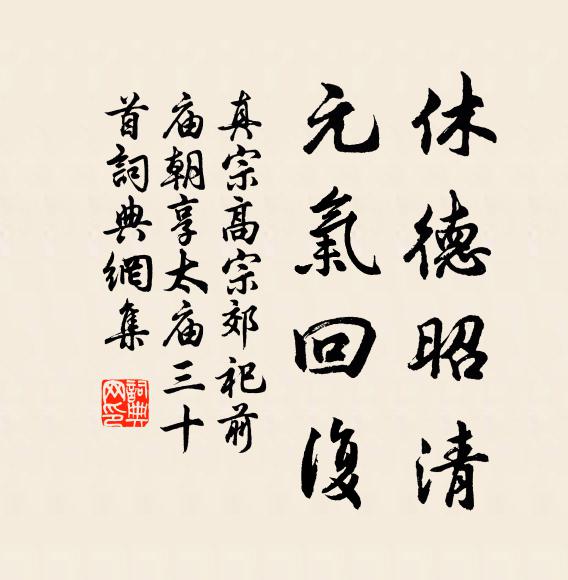 休德昭清
元氣回復
真宗高宗郊祀前
庙朝享太庙三十
首詞典網集
詞典网印